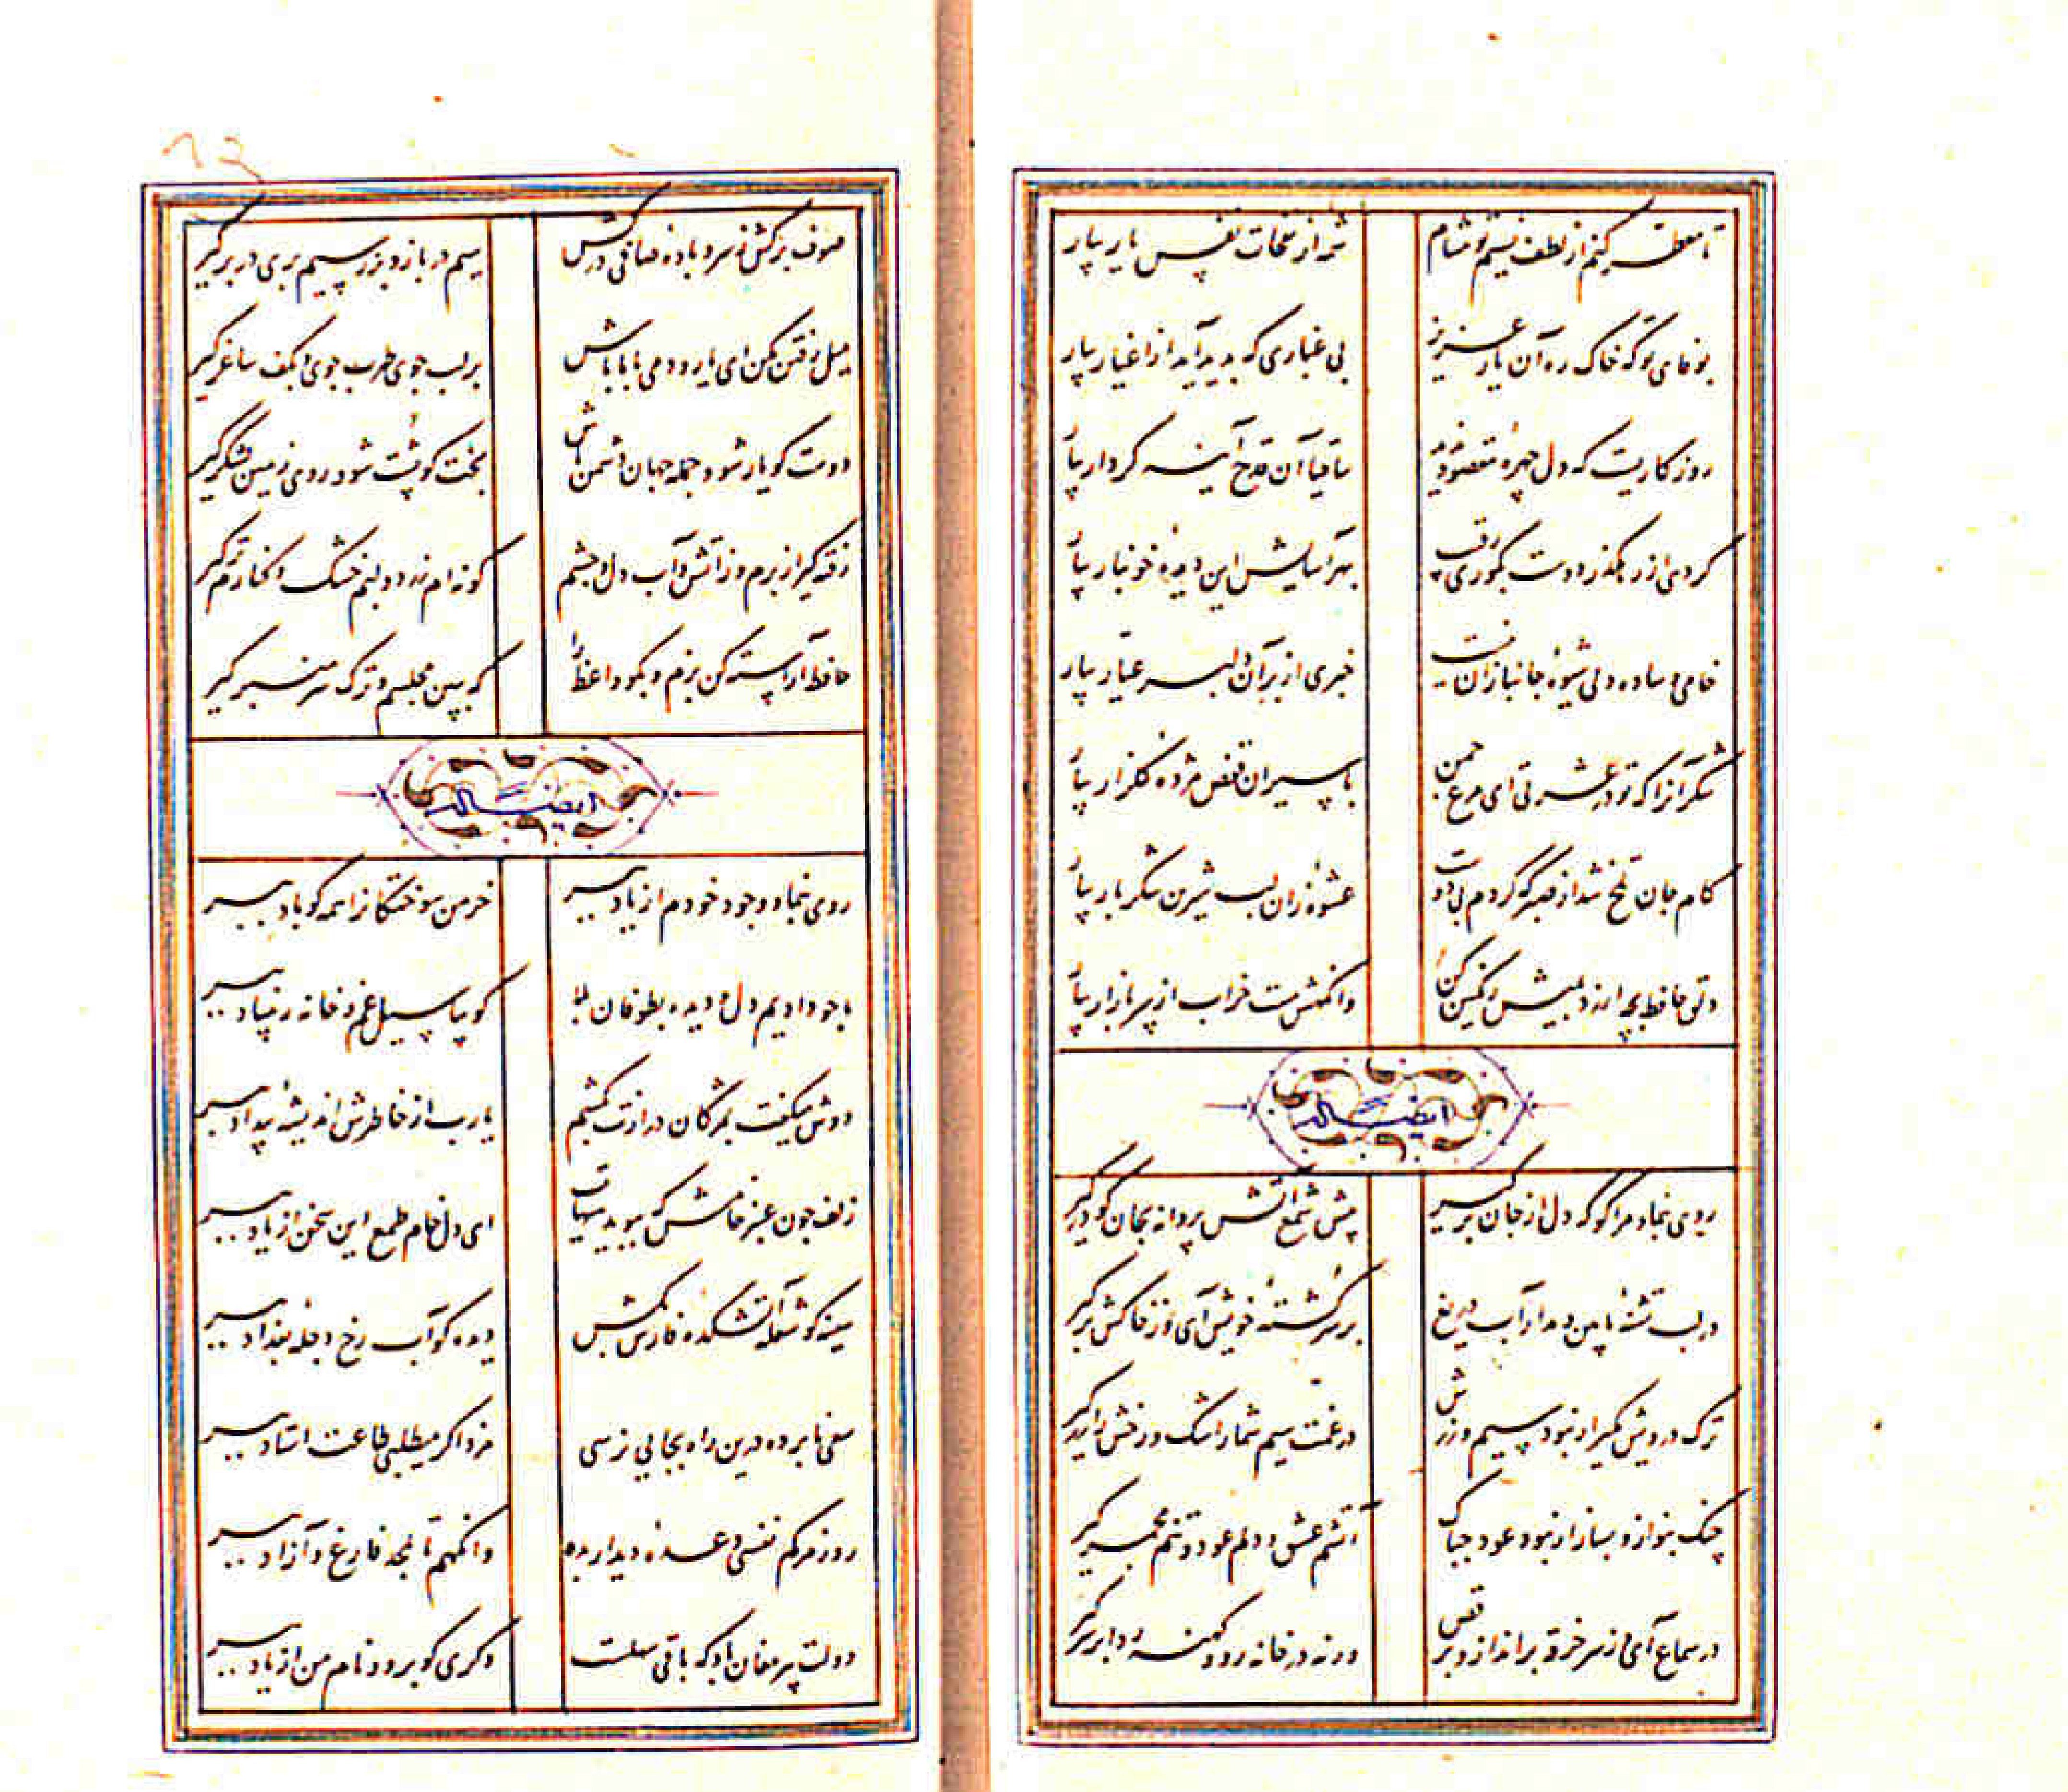 تا معطر کنم از لطف نسیم تو مشام
شمه از نفحات نفس یار بیار
بوفای تو که خاک ره آن یار عزیز
بی غباری که پدید آید از اغیار بیار
روزگاریست که دل چهره مقصود ندید
ساقیا آن قدح آینه کردار بیار
کردی از رهگذر دوست بکوری رقیب
بهر آسایش این دیده خونبار بیار
خامی و ساده دلی شیوه جانبازان نیست
خبری از بر آن دلبر عیار بیار
شکر آنرا که تو در عشرتی ای مرغ چمن
باسیران قفس مژده گلزار بیار
کام جان تلخ شد از صبر که کردم بی دوست
عشوه زان لب شیرین شکربار بیار
دلق حافظ بچه ارزد بمیش رنگین کن
وانگهش مست خراب از سر بازار بیار
ایضاله
روی بنما و مرا گو که دل از جان برگیر
پیش شمع آتش پروانه بجان گو درگیر
در لب تشنه ما بین و مدار آب دریغ
بر سر کشته خویش آی و ز خاکش برگیر
ترک درویش مگیر ار نبود سیم و زرش
در غمت سیم شمار اشک و رخش را زر گیر
چنک بنواز و بساز ار نبود عود چه باک
آتشم عشق و دلم عود و تنم مجمر گیر
در سماع آی و ز سر خرقه برانداز و برقص
ورنه در خانه رو و کهنه ردا بر سر گیر
صوف برکش ز سر و باده صافی درکش
سیم در باز و بزر سیم بری در بر گیر
میل رفتن مکن ای یار و دمی با ما باش
بر لب جوی طرب جوی و بکف ساغر گیر
دوست گو یار شو و جمله جهان دشمن باش
بخت گو پشت شو و روی زمین لشکر گیر
رفته گیر از برم وز آتش و آب دل و چشم
گونه ام زرد و لبم خشک و کنارم تر گیر
حافظ آراسته کن بزم و بگو واعظ را
که ببین مجلسم و ترک سر منبر گیر
ایضاله
روی بنما و وجود خودم از یاد ببر
خرمن سوختگانرا همه گو باد ببر
ما چو دادیم دل و دیده بطوفان بلا
گو بیا سیل غم و خانه ز بنیاد ببر
دوش میگفت بمژگان درازت بکشم
یارب از خاطرش اندیشه بیداد ببر
زلف چون عنبر خامش که ببوید هیهات
ای دل خام طمع این سخن از یاد ببر
سینه گو شعله آتشکده فارس بکش
دیده گو آب رخ دجله بغداد ببر
سعی نابرده درین راه بجایی نرسی
مزد اگر میطلبی طاعت استاد ببر
روز مرگم نفسی وعده دیدار بده
وانگهم تا بلحد فارغ و آزاد ببر
دولت پیر مغان باد که باقی سهلست
دگری گو برو و نام من از یاد ببر